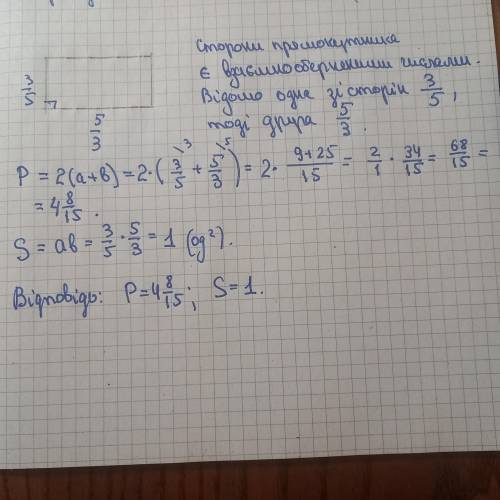 Сторони прямокутника
є взаємнооберненими числами.
Відомо одна зі сторін 3/5,
тоді друга 5/3.
3/5
5/3
P = 2(a+b) = 2·(3/5 + 5/3) = 2· (9+25)/15 = 2/1 · 34/15 = 68/15 =
= 4 8/15.
S = ab = 3/5 · 5/3 = 1 (од²).
Відповідь: P=4 8/15; S=1.